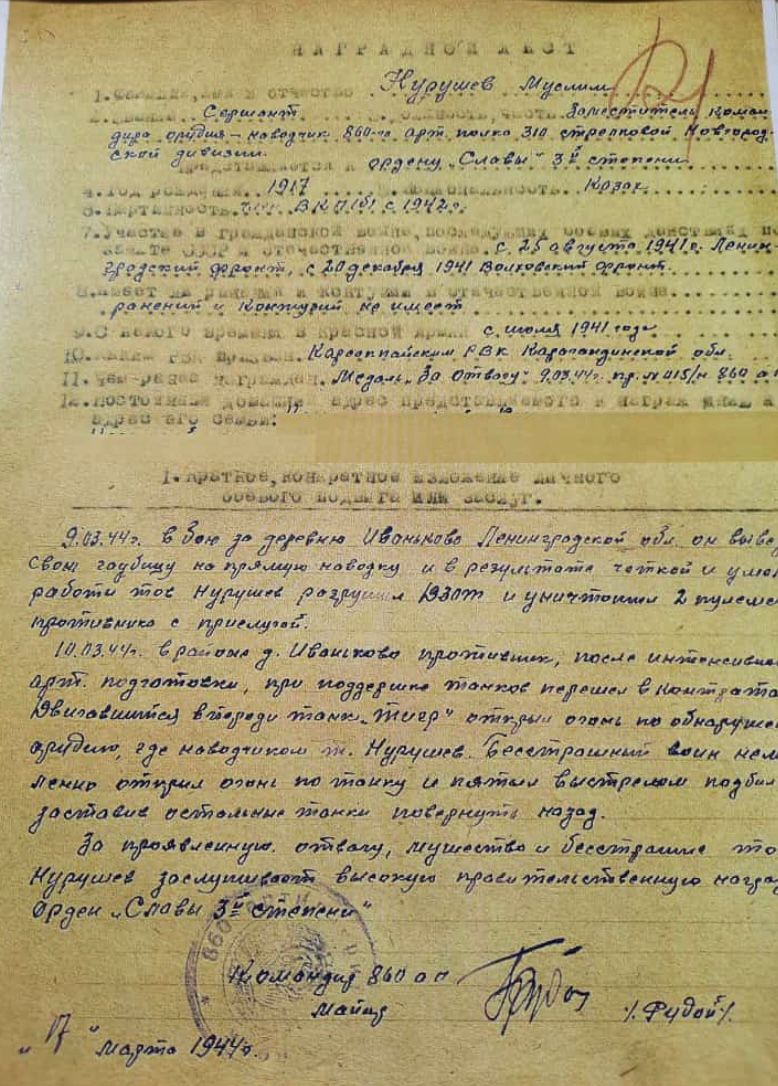 НАГРАДНОЙ ЛИСТ
1. Фамилия, имя и отчество Нурушев Муслим
2. Звание Сержант 3. должность, часть Заместитель коман
дира орудия – наводчик 860-го арт. полка 310 стрелковой Новгород-
ской дивизии.
Представляется к ордену „Славы" 3й степени
4. Год рождения 1917 5. Национальность Казах
6. Партийность чл. ВКП(б) с 1942 г.
7. Участие в гражданской войне, последующих боевых действиях по
защите СССР и отечественной войне. с 25 августа 1941 г. Ленин-
градский фронт, с 20 декабря 1941 Волховский фронт.
8. Имеет ли ранения и контузии в отечественной войне
ранений и контузий не имеет
9. С какого времени в Красной армии с июля 1941 года
10. Каким РВК призван. Карсакпайским РВК Карагандинской обл.
11. Чем ранее награжден. Медаль „За Отвагу" 9.03.44г. пр. № 015/н 860 ап
12. Постоянный домашний адрес представляемого к награждению и
адрес его семьи:
1. Краткое, конкретное изложение личного
боевого подвига или заслуг.
9.03.44г. в бою за деревню Иваньково Ленинградской обл. он вывел
свою гаубицу на прямую наводку и в результате четкой и умел
работы тов Нурушев разрушил ДЗОТ и уничтожил 2 пулеме
противника с прислугой.
10.03.44г. в районе д. Иваньково противник, после интенсивно
арт. подготовки, при поддержке танков перешел в контрата
Двигавшийся впереди танк „Тигр" открыл огонь по обнаруже
орудию, где наводчиком т. Нурушев. Бесстрашный воин нем
ленно открыл огонь по танку и пятым выстрелом подбил
заставив остальные танки повернуть назад.
За проявленную отвагу, мужество и бесстрашие то
Нурушев заслуживает высокую правительственную наград
Орден „Славы 3й степени"
Командир 860 ап
Майор /. Рудой /.
„17" марта 1944г.